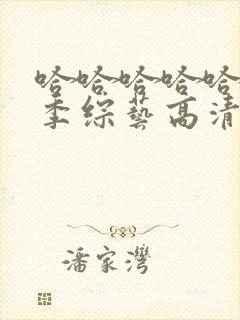 哈哈哈哈哈
季综艺高清
潘家湾